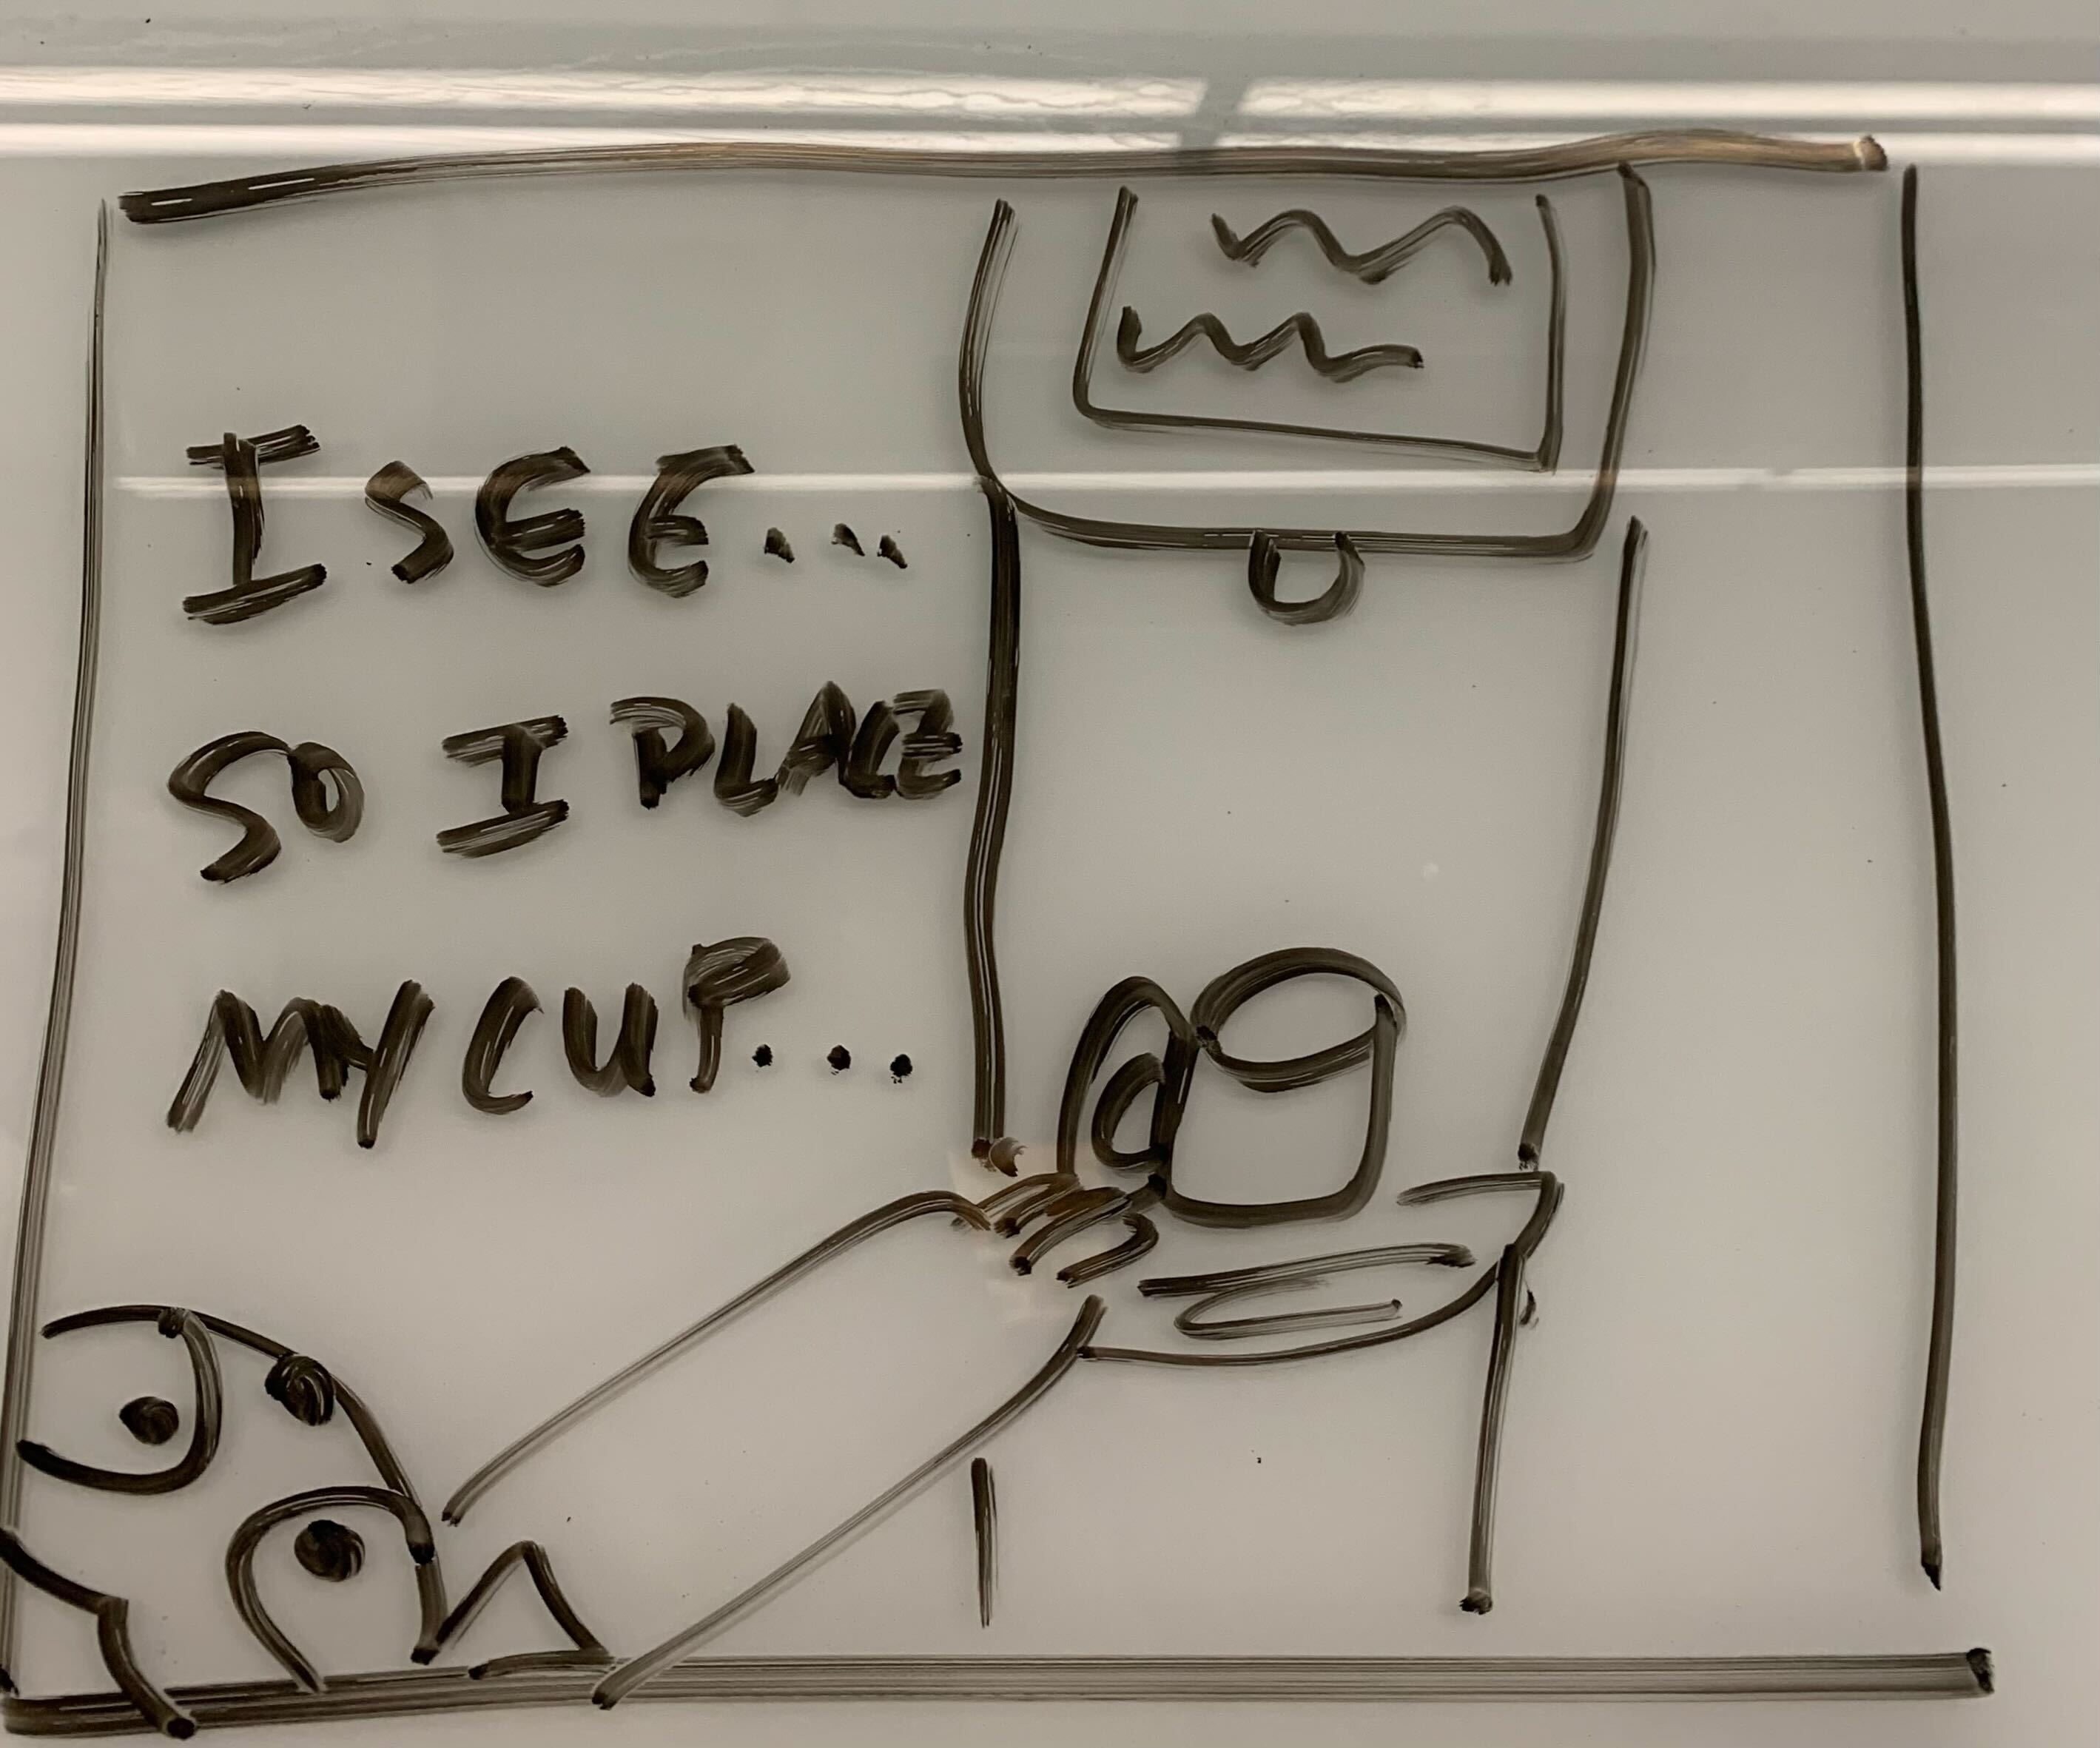 I SEE...
SO I PLACE
MY CUP...